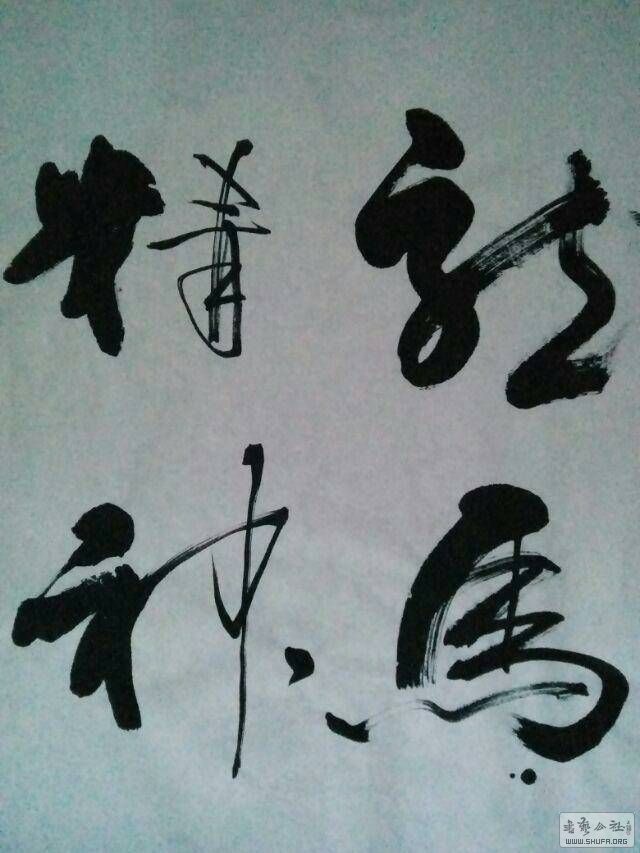 龍馬
精神
書藝公社
WWW.SHUFA.ORG